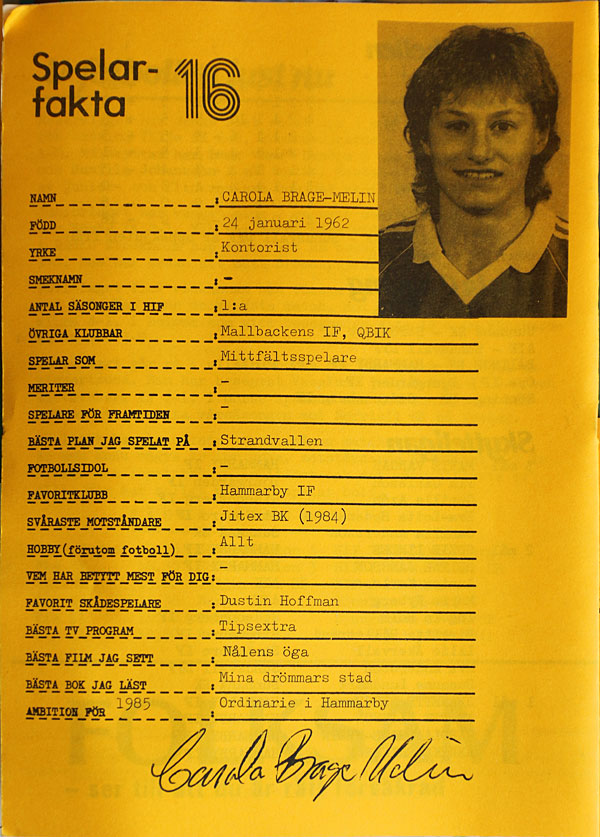 Spelar-
fakta 16
NAMN : CAROLA BRAGE-MELIN
FÖDD : 24 januari 1962
YRKE : Kontorist
SMEKNAMN : -
ANTAL SÄSONGER I HIF : 1:a
ÖVRIGA KLUBBAR : Mallbackens IF, QBIK
SPELAR SOM : Mittfältsspelare
MERITER : -
SPELARE FÖR FRAMTIDEN : -
BÄSTA PLAN JAG SPELAT PÅ : Strandvallen
FOTBOLLSIDOL : -
FAVORITKLUBB : Hammarby IF
SVÅRASTE MOTSTÅNDARE : Jitex BK (1984)
HOBBY(förutom fotboll) : Allt
VEM HAR BETYTT MEST FÖR DIG: -
FAVORIT SKÅDESPELARE : Dustin Hoffman
BÄSTA TV PROGRAM : Tipsextra
BÄSTA FILM JAG SETT : Nålens öga
BÄSTA BOK JAG LÄST : Mina drömmars stad
AMBITION FÖR 1985 : Ordinarie i Hammarby
Carola Brage Melin